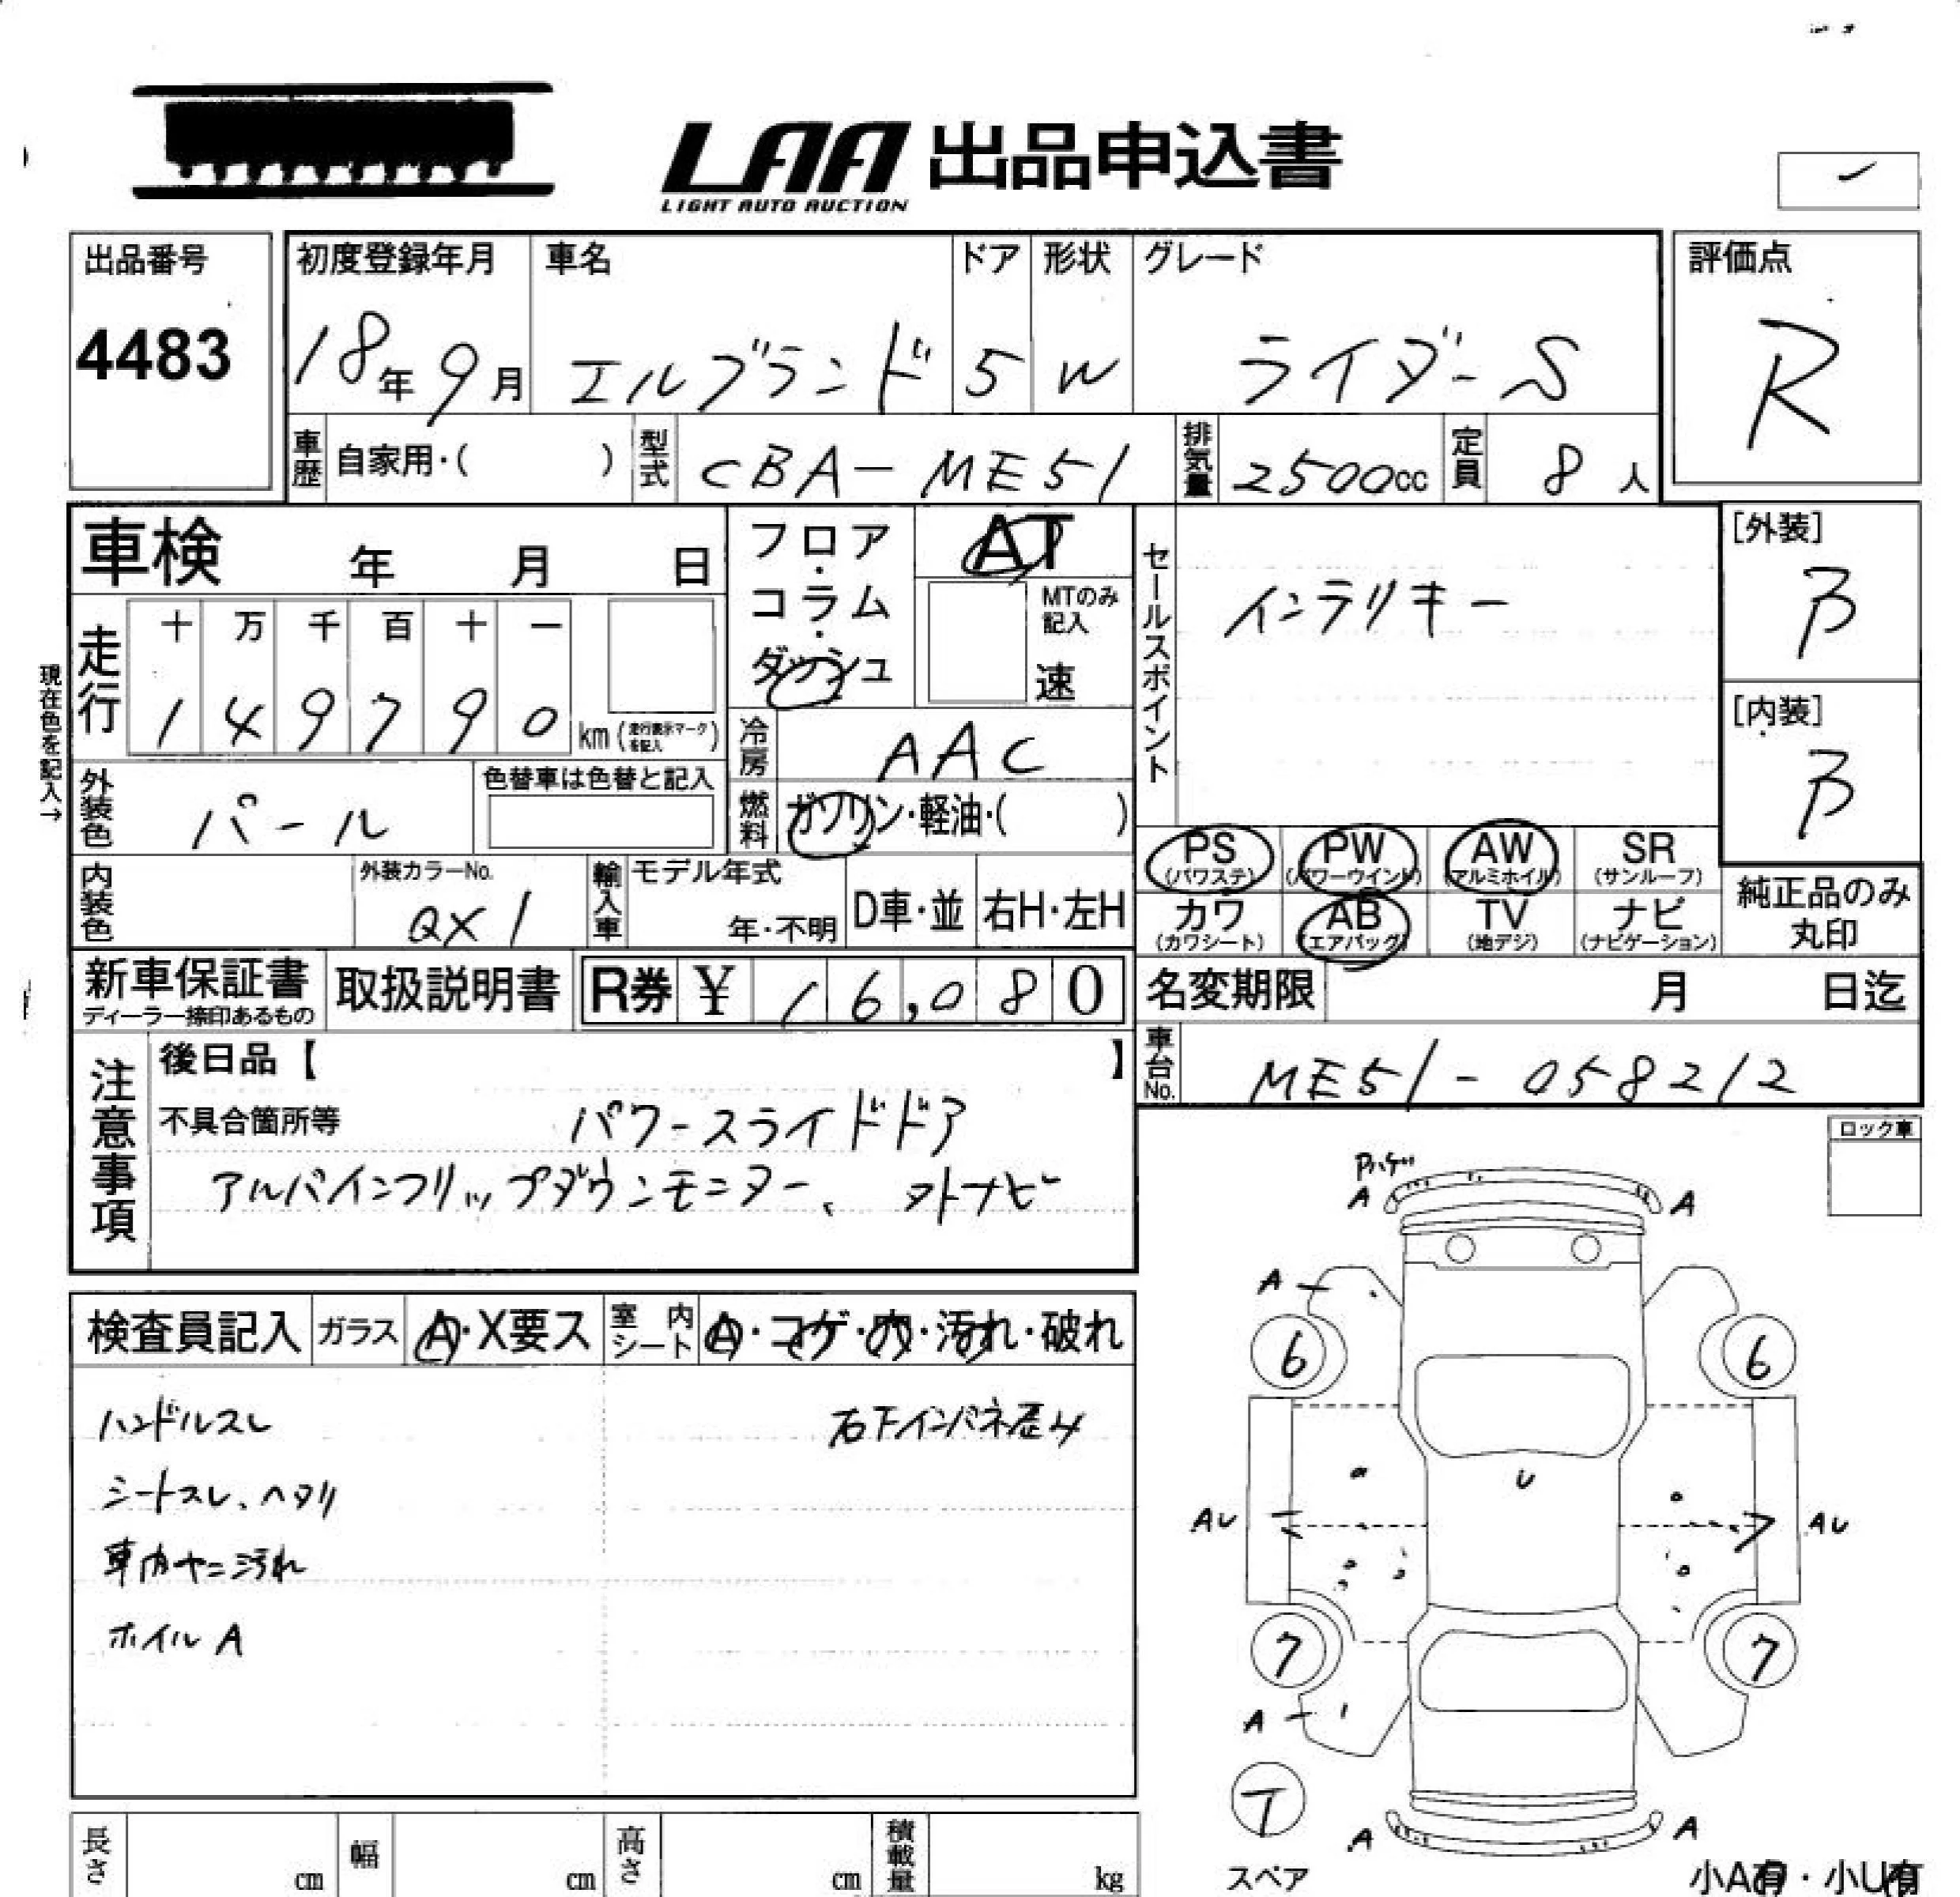 LAA 出品申込書
LIGHT AUTO AUCTION
出品番号
4483
初度登録年月
18年9月
車名
エルグランド
ドア
5
形状
W
グレード
ライダーS
評価点
R
車歴 自家用・( )
型式 CBA-ME51
排気量 2500cc
定員 8人
車検 年 月 日
フロア・コラム・ダッシュ
AT
MTのみ記入
速
セールスポイント
インテリキー
[外装]
B
[内装]
B
現在色を記入→
走行
十 万 千 百 十 一
1 4 9 7 9 0 km(走行表示マークを記入)
冷房 AAC
外装色 パール
色替車は色替と記入
燃料 ガソリン・軽油・( )
内装色
外装カラーNo.
QX1
輸入車
モデル年式
年・不明
D車・並
右H・左H
PS (パワステ)
PW (パワーウインド)
AW (アルミホイル)
SR (サンルーフ)
カワ (カワシート)
AB (エアバッグ)
TV (地デジ)
ナビ (ナビゲーション)
純正品のみ丸印
新車保証書
ディーラー捺印あるもの
取扱説明書
R券 ¥ 16,080
名変期限 月 日迄
車台No. ME51-058212
注意事項
後日品【 】
不具合箇所等 パワースライドドア
アルパインフリップダウンモニター、外ナビ
ロック車
検査員記入
ガラス A・X要ス
室内シート A・コゲ・穴・汚れ・破れ
ハンドルスレ
右下インパネ歪み
シートスレ、ヘタリ
車内ヤニ汚れ
ホイルA
A A
A
6 6
U
AU AU
7 7
A
T
スペア
A A
長さ cm
幅 cm
高さ cm
積載量 kg
小A有・小U有